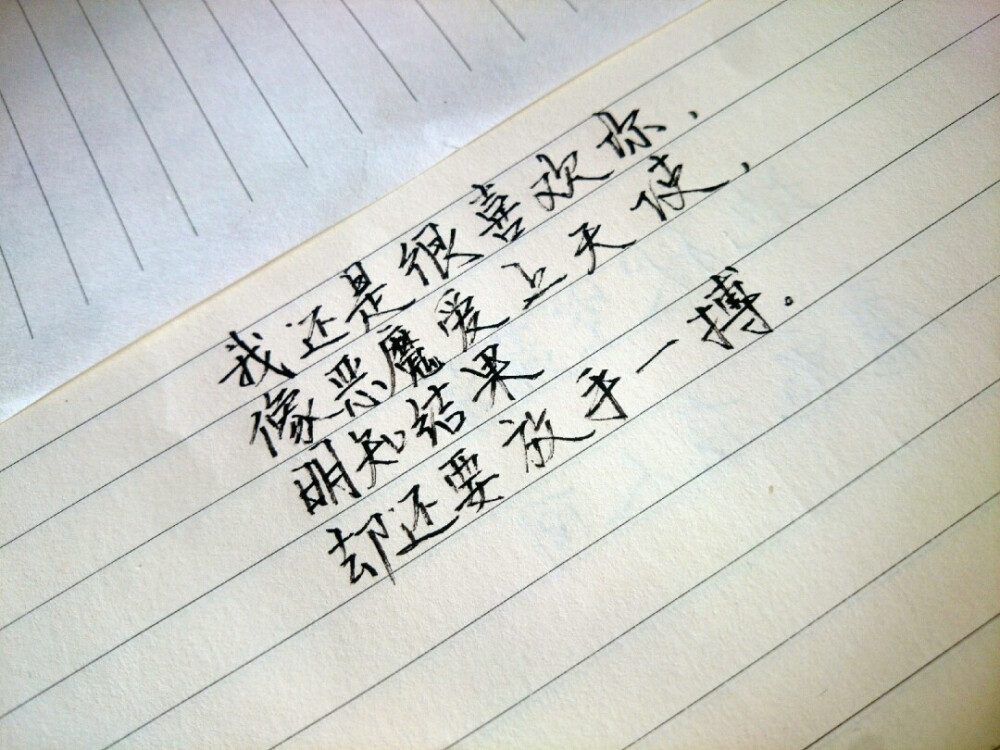 我还是很喜欢你，
像恶魔爱上天使，
明知结果
却还要放手一搏。